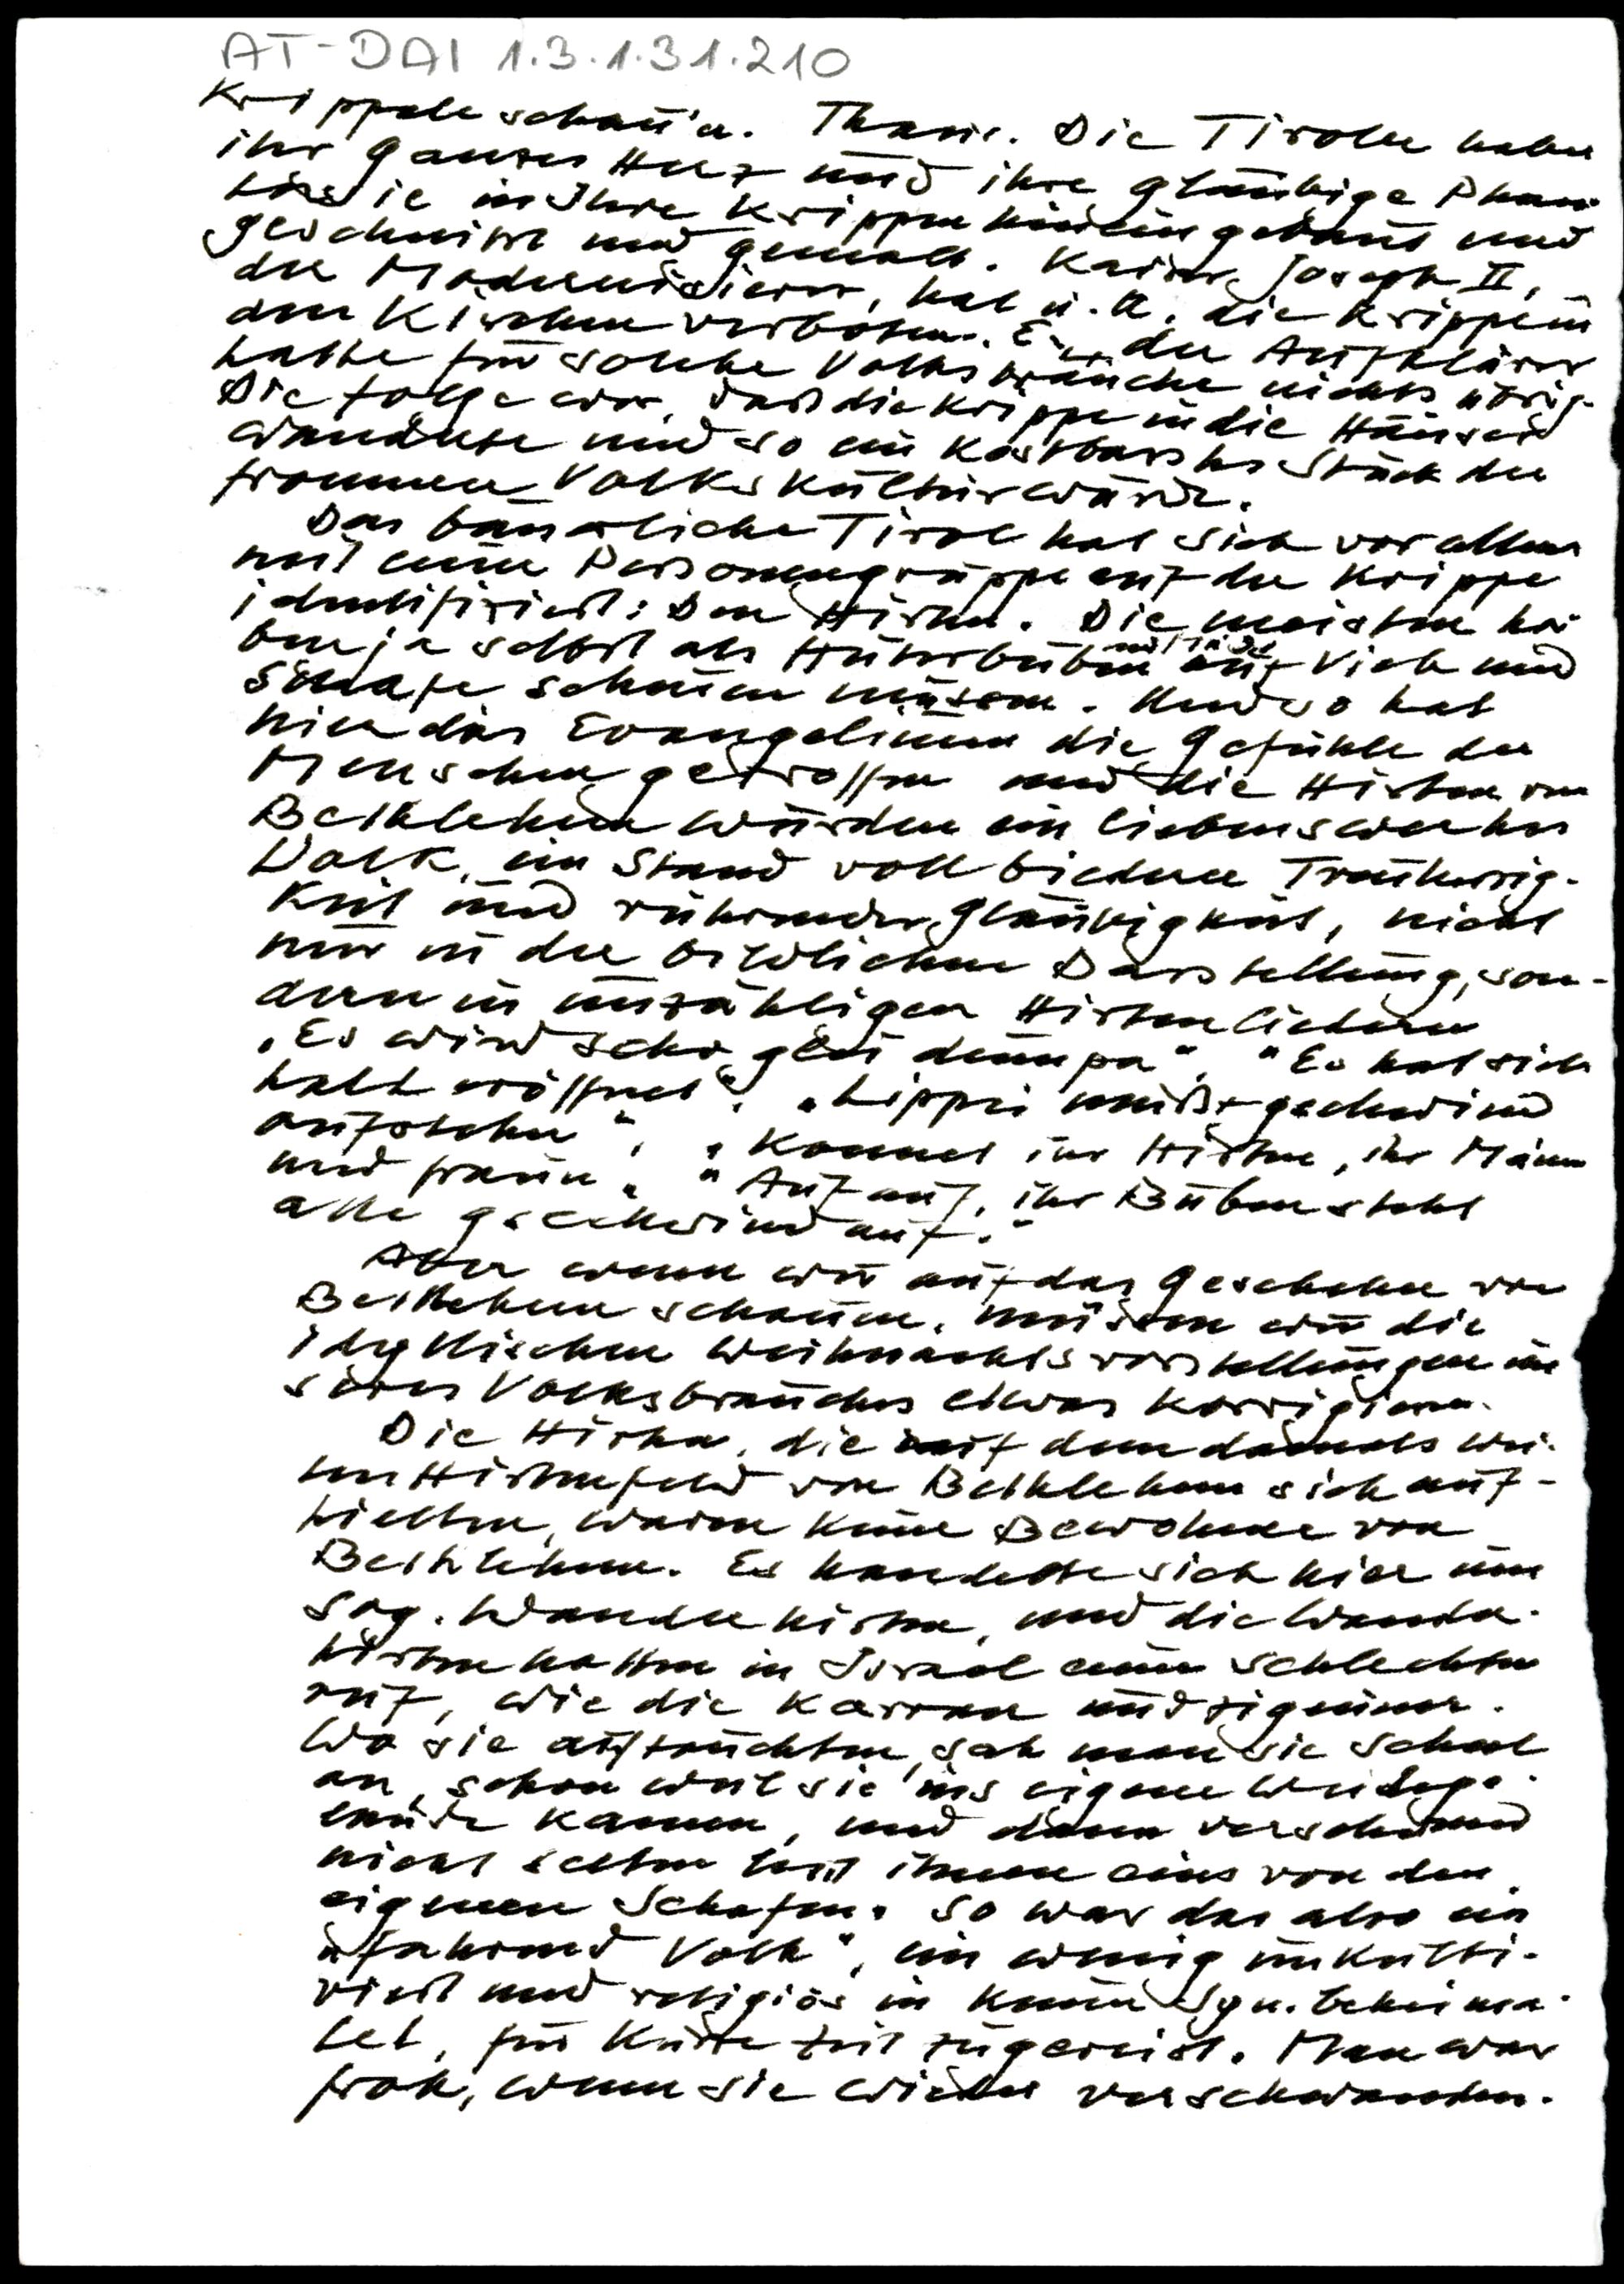 AT-DAI 1.3.1.31.210
Krippele schau'n. Thaur. Die Tiroler haben
ihr ganzes Herz und ihre gläubige Phan-
tasie in Ihre Krippen hineingebaut und
geschnitzt und gemalt. Kaiser Joseph II,
der Modernisierer, hat u. a. die Krippe in
den Kirchen verboten. Er, der Aufklärer
hatte für solche Volksbräuche nichts übrig.
Die Folge war, daß die Krippe in die Häuser
wanderte und so ein kostbarstes Stück der
frommen Volkskultur wurde.
Das bäuerliche Tirol hat sich vor allem
mit einer Personengruppe auf der Krippe
identifiziert: Den Hirten. Die meisten ha-
ben ja selbst als Hüterbuben auf Vieh und
Schafe schauen müssen. Und so hat
hier das Evangelium die Gefühle der
Menschen getroffen und die Hirten von
Bethlehem wurden ein liebenswertes
Volk, ein Stand voll biederer Treuherzig-
keit und rührender Gläubigkeit, nicht
nur in der bildlichen Darstellung, son-
dern in unzähligen Hirtenliedern
„Es wird scho glei dumpa", "Es hat sich
halt eröffnet", „Lippei mußt geschwind
aufstehn", „Kommet ihr Hirten, ihr Männer
und Fraun", "Auf auf, ihr Buben steht
alle gschwind auf."
Aber wenn wir auf das Geschehen von
Bethlehem schauen, müssen wir die
idyllischen Weihnachtsvorstellungen un
seres Volksbrauches etwas korrigieren.
Die Hirten, die auf dem damals wei-
ten Hirtenfeld von Bethlehem sich auf-
hielten, waren keine Bewohner von
Bethlehem. Es handelte sich hier um
sog. Wanderhirten, und die Wander-
hirten hatten in Israel einen schlechten
Ruf, wie die Karner und Zigeuner.
Wo sie auftauchten, sah man sie scheel
an, schon weil sie ins eigene Weidege-
lände kamen, und dann verschwand
nicht selten mit ihnen eins von den
eigenen Schafen. So war das also ein
„fahrend Volk", ein wenig unkulti-
viert und religiös in keiner Syn. beheima-
tet, für kurze Zeit zugereist. Man war
froh, wenn sie wieder verschwanden.